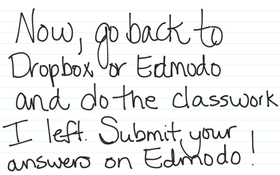 Now, go back to
Dropbox or Edmodo
and do the classwork
I left. Submit your
answers on Edmodo!